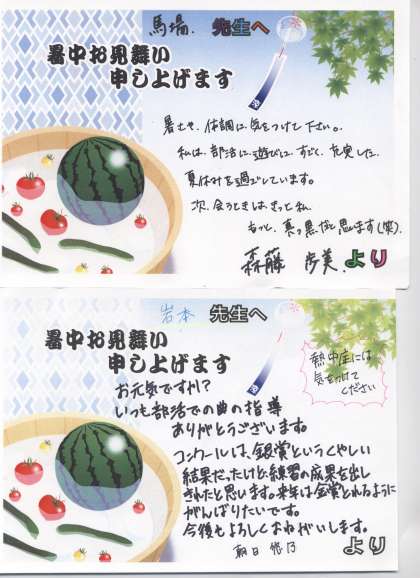 馬場 先生へ
暑中お見舞い
申し上げます
暑さや、体調に、気をつけて下さい。
私は、部活に、遊びに、すごく、充実した、
夏休みを過ごしています。
次、会うときは、きっと私
もっと、真っ黒だと思います(笑)
歩美 より
岩本 先生へ
暑中お見舞い
申し上げます
熱中症には
気をつけて
ください
お元気ですか?
いつも部活での曲の指導
ありがとうございます。
コンクールは、銀賞というくやしい
結果だったけど、練習の成果を出し
きれたと思います。来年は金賞とれるように
がんばりたいです。
今後もよろしくおねがいします。
朝日 悠乃 より